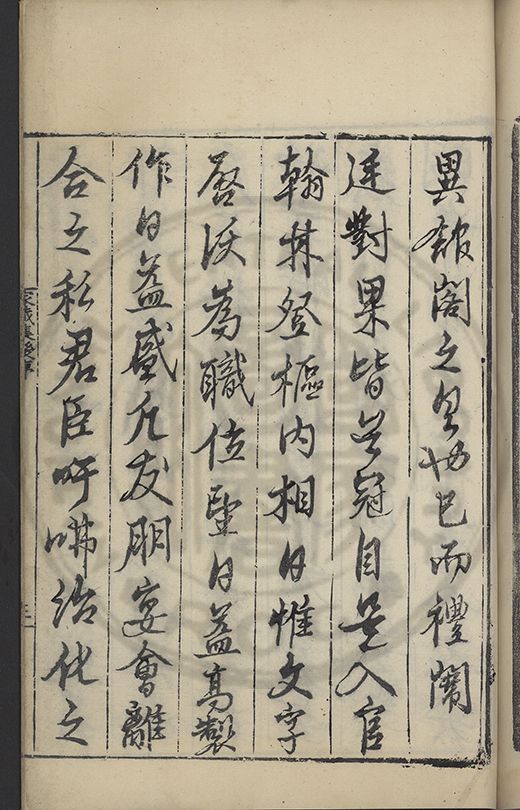 異館閣之具也已而禮闈
廷對果皆首冠自是入官
翰林登樞內相日惟文字
啓沃為職位望日益高製
作日益盛凡友朋宴會離
合之私君臣吁咈治化之